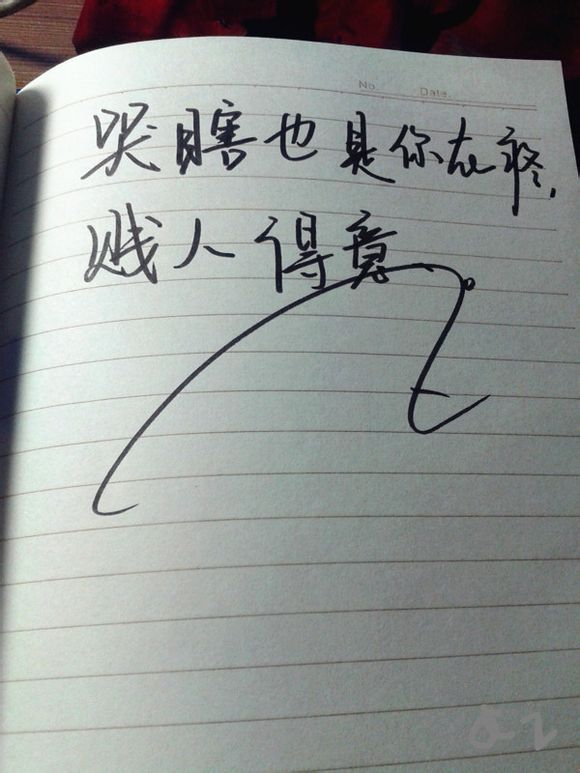 No. Date.
哭瞎也是你在疼,
贱人得意